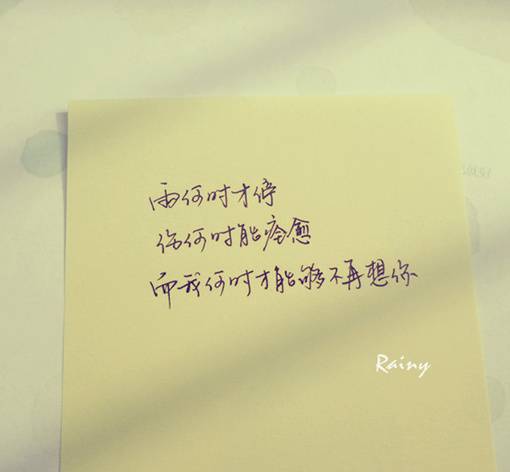 雨何时才停
伤何时能痊愈
而我何时才能够不再想你
Rainy